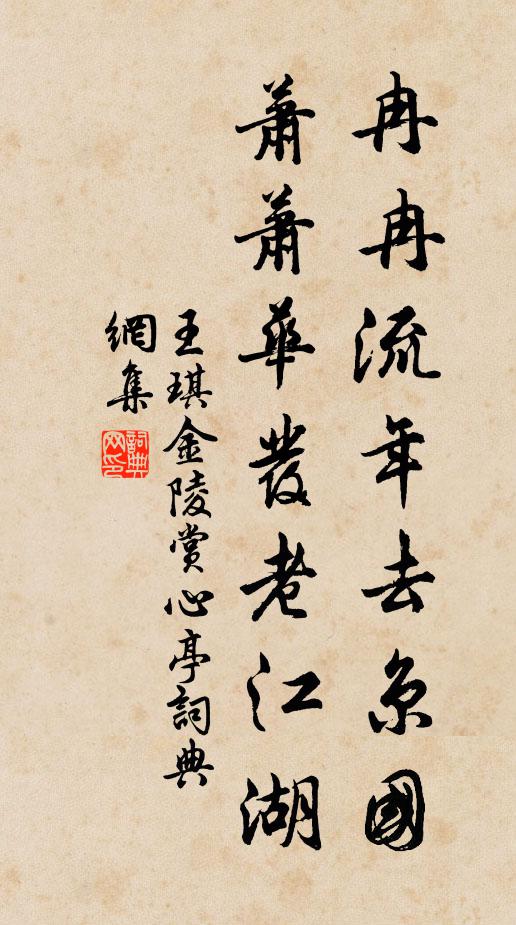 冉冉流年去京國
蕭蕭華髮老江湖
王琪金陵賞心亭詞典
網集
詞典網印